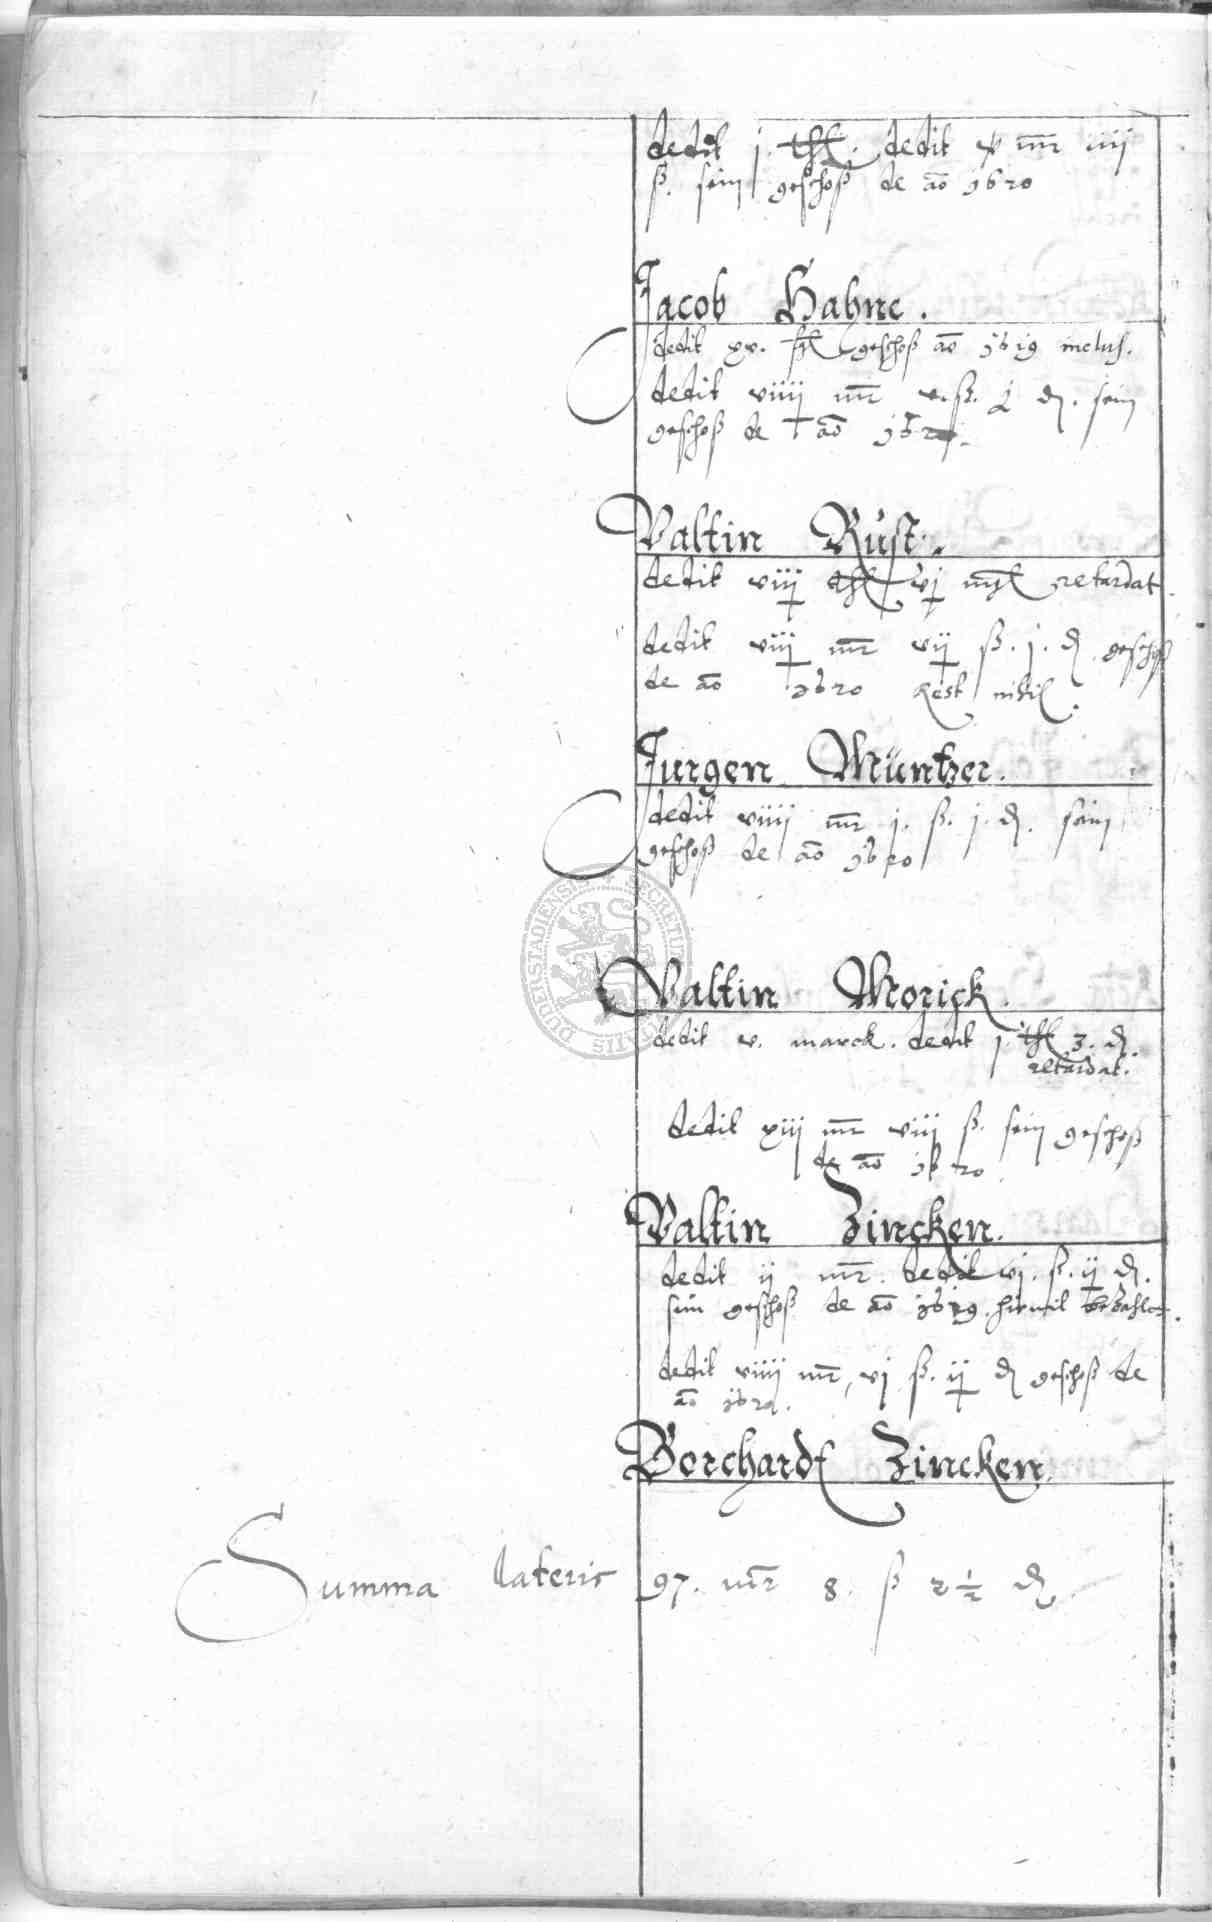 dedit j. thl. dedit v mr iiij
ß. sein geschoß de ao 1620
Jacob Hahne.
dedit xv. geschoß ao 1619 inclus.
dedit viiij mr v. ß. d. sein
geschoß de ao
Valtin Rust.
dedit viij thl vj retardat.
dedit viij mr vij ß. j. d geschoß
de ao 1620 Rest nihil.
Jurgen Müntzer.
dedit viiij mr j. ß. j. d. sein
geschoß de ao 1620
DUDERSTADIENSIS SECRETUM
Valtin Morick.
dedit v. marck. dedit j. thl 3. d.
retardat.
dedit xiij mr viij ß. sein geschoß
de ao 1620
Valtin Zincken.
dedit ij mr. dedit vj. ß. ij d.
sein geschoß de ao 1619. hirmit bezahlt.
dedit viiij mr, vj ß. ij d geschoß de
ao 1620.
Borchardt Zincken.
Summa lateris 97. mr 8. ß 2 1/2 d.